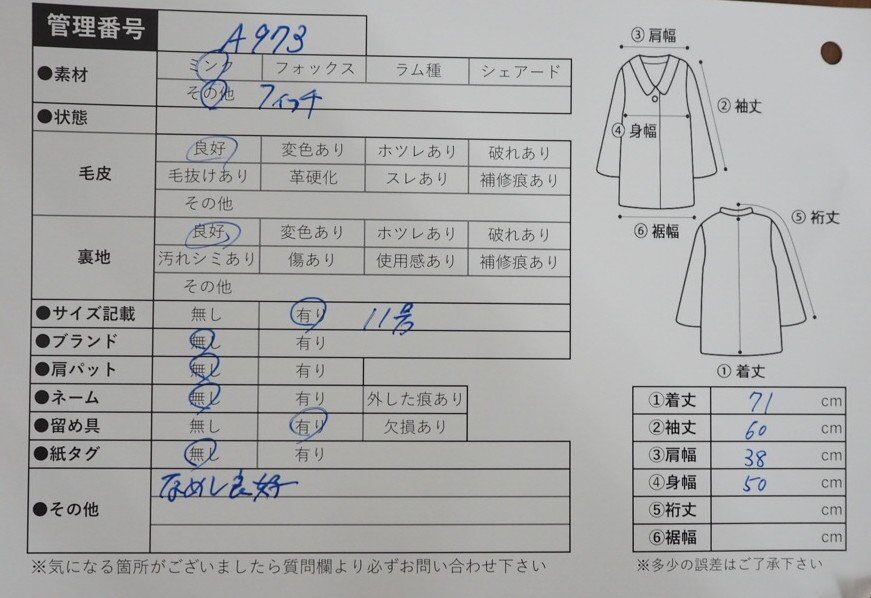 管理番号 A973
●素材 ミンク フォックス ラム種 シェアード
その他 フィッチ
●状態
毛皮 良好 変色あり ホツレあり 破れあり
毛抜けあり 革硬化 スレあり 補修痕あり
その他
裏地 良好 変色あり ホツレあり 破れあり
汚れシミあり 傷あり 使用感あり 補修痕あり
その他
●サイズ記載 無し 有り 11号
●ブランド 無し 有り
●肩パット 無し 有り
●ネーム 無し 有り 外した痕あり
●留め具 無し 有り 欠損あり
●紙タグ 無し 有り
●その他 なめし良好
※気になる箇所がございましたら質問欄より必ずお問い合わせ下さい
③肩幅
②袖丈
④身幅
⑥裾幅
⑤裄丈
①着丈
①着丈 71 cm
②袖丈 60 cm
③肩幅 38 cm
④身幅 50 cm
⑤裄丈 cm
⑥裾幅 cm
※多少の誤差はご了承下さい